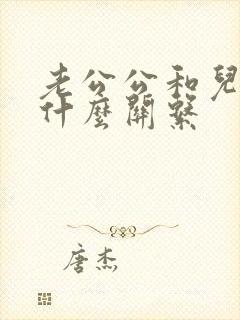 老公公和兒
什麼關繫
唐杰